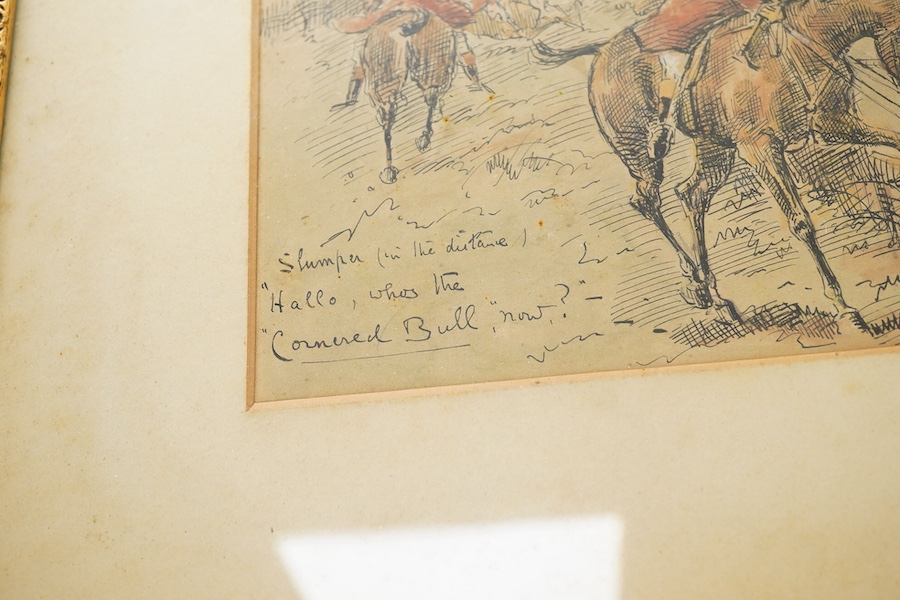 Slumper (in the distance)
"Hallo, whos the
"Cornered Bull", now?" -